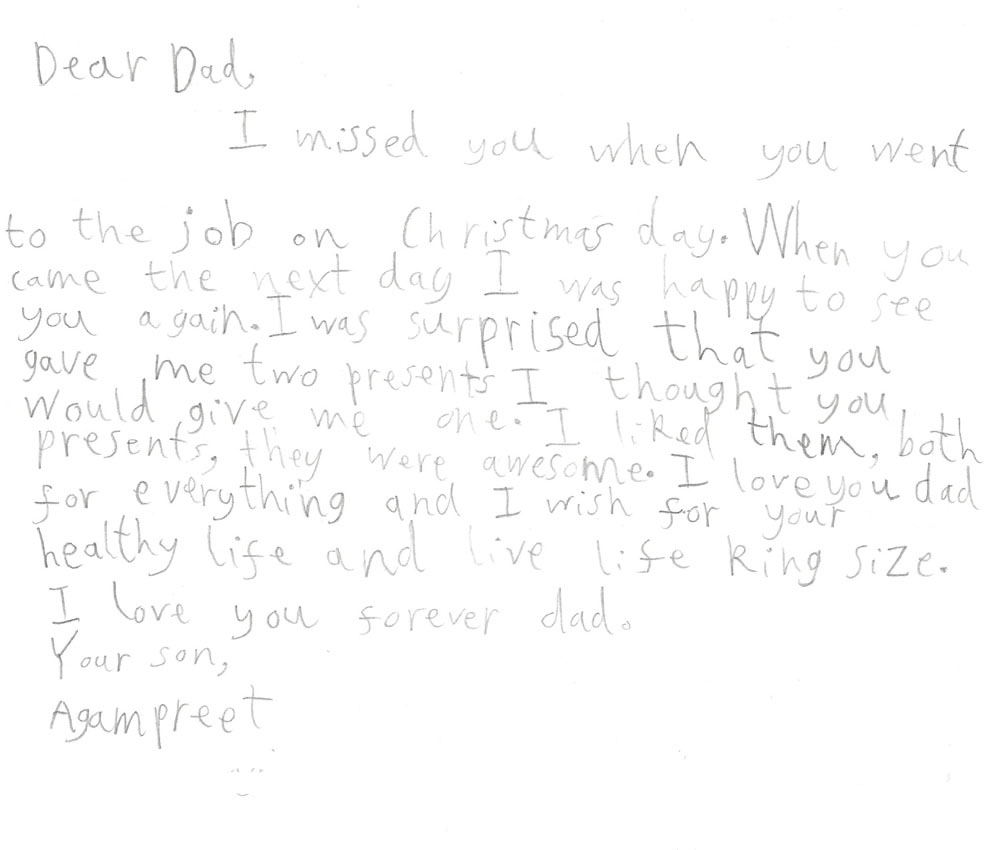 Dear Dad,
I missed you when you went
to the job on Christmas day. When you
came the next day I was happy to see
you again. I was surprised that you
gave me two presents I thought you
would give me one. I liked them, both
presents, they were awesome. I love you dad
for everything and I wish for your
healthy life and live life king size.
I love you forever dad.
Your son,
Agampreet